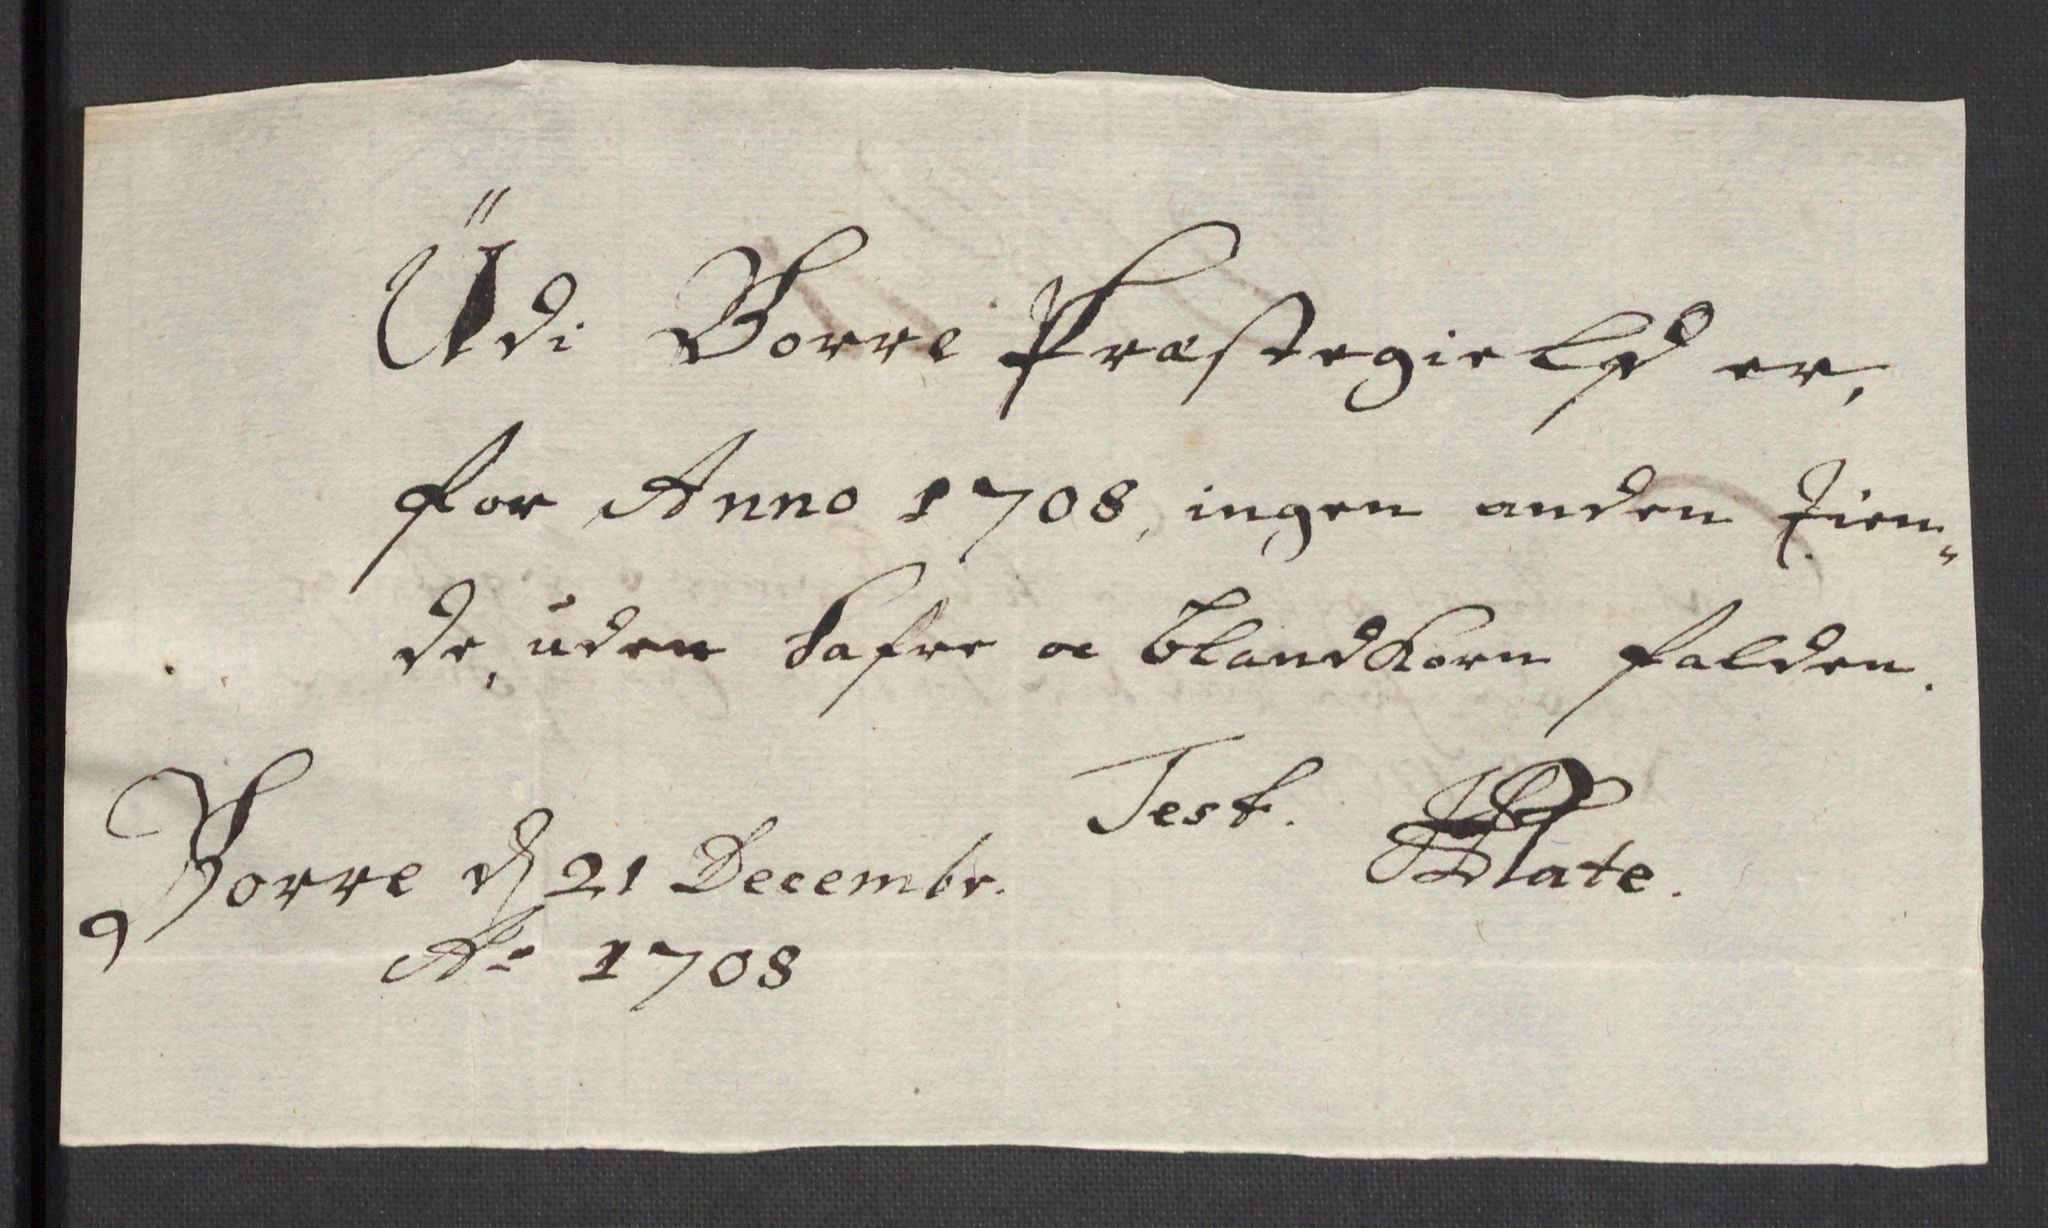 Udi Borre Præstegield er,
for Anno 1708, ingen anden Tien-
de, uden Hafre oc blandkorn falden.
Test. Plate.
Borre d 21 Decembr.
Ao 1708